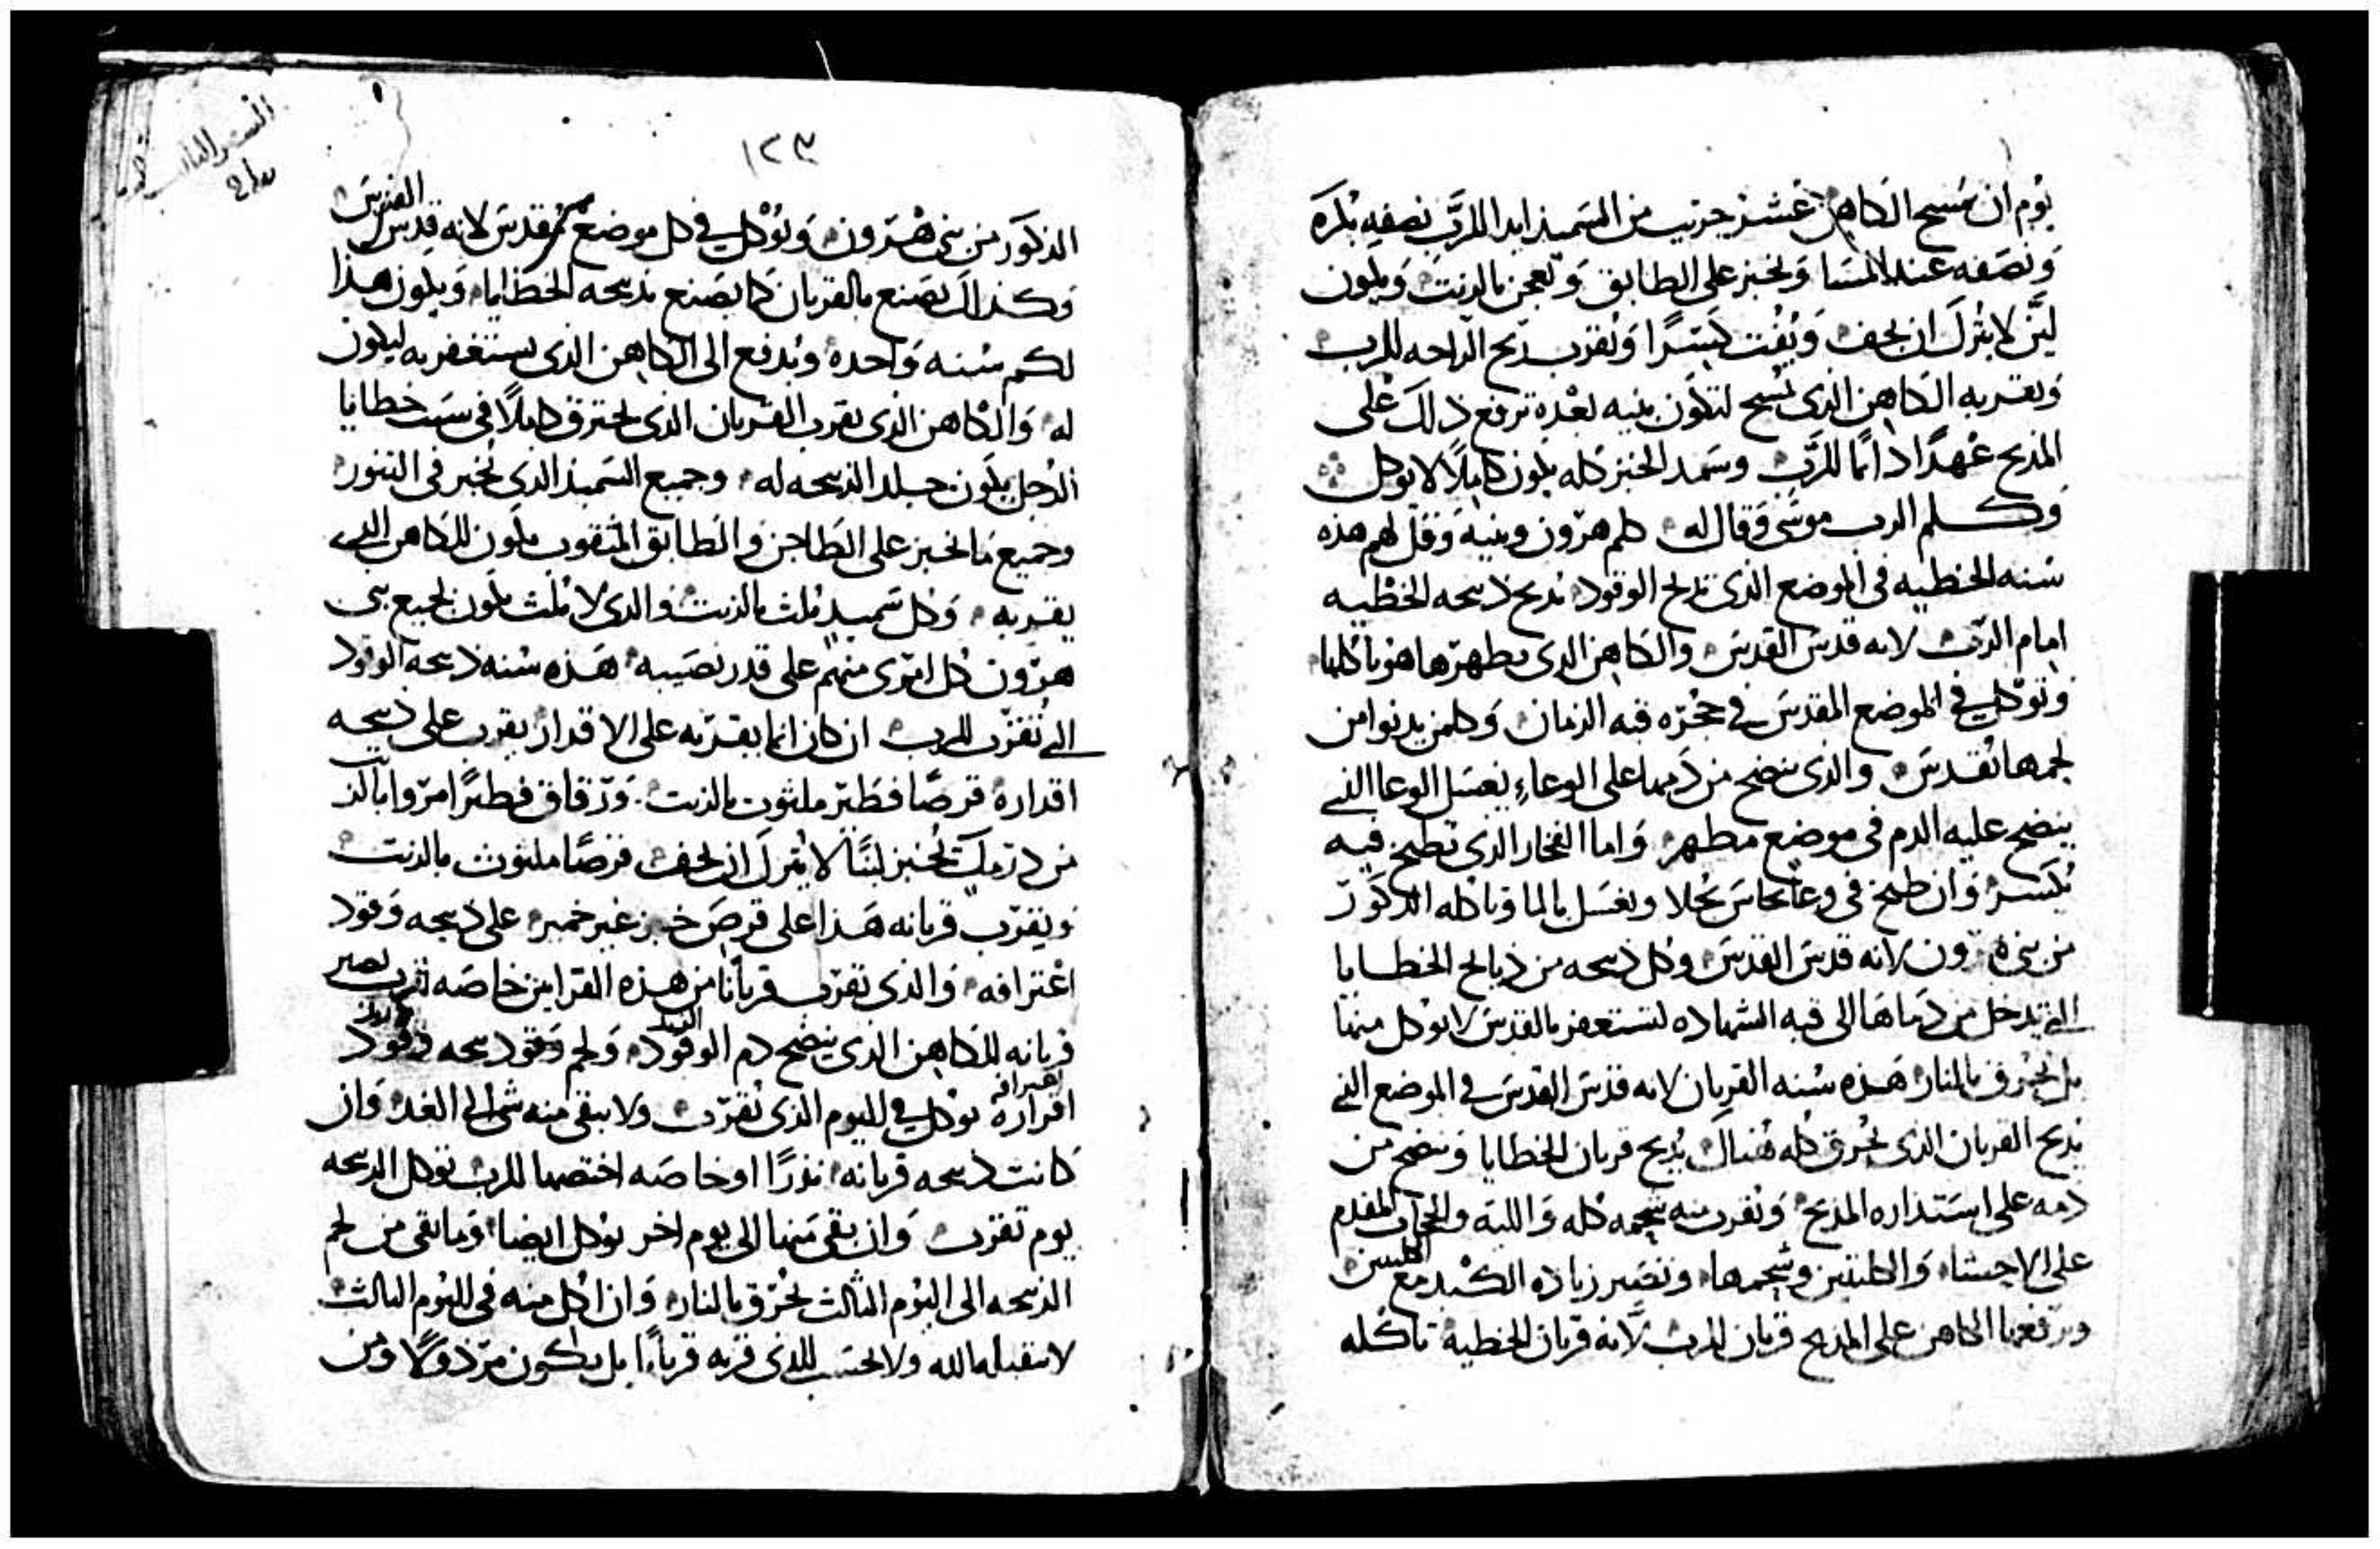 يوم ان مسح الكاهن عشر جريب من السميذ ابدا للرب نصفه بكره
ونصفه عند المسا ويخبز على الطابق وتعجن بالزيت ويكون
لين لا يترك ان يجف ويفت كسرا ويقرب ريح الراحه للرب
ويقربه الكاهن الذي يمسح لتكون بنيه بعده ترفع ذلك على
المذبح عهدا دايما للرب وسمد الخبز كله يكون كاملا لا يوكل
وكلم الرب موسى وقال له كلم هرون وبنيه وقل لهم هذه
سنه الخطيه في الموضع الذي تذبح الوقود تذبح ذبيحه الخطيه
امام الرب لانه قدس القدس والكاهن الذي يطهرها هو ياكلها
وتوكل في الموضع المقدس في حجره قبه الزمان وكلمن يدنوا من
لحمها يقدس والذي ينضح من دمها على الوعاء يغسل الوعا الذي
ينضح عليه الدم في موضع مطهر واما الفخار الذي تطبخ فيه
يكسر وان طبخ في وعا نحاس يجلا ويغسل بالما وياكله الذكور
من بني هرون لانه قدس القدس وكل ذبيحه من ذبايح الخطايا
التي يدخل من دماها الى قبه الشهاده لتستغفر بالقدس لا يوكل منها
بل يحرق بالنار هذه سنه القربان لانه قدس القدس في الموضع الذي
يذبح القربان الذي يحرق كله هناك يذبح قربان الخطايا وينضح من
دمه على استداره المذبح ويقرب منه شحمه كله والليه والحجاب المقدم
على الاحشا والكليتين وشحمها وتصير زياده الكبد مع الكليتين
ويرفعها الكاهن على المذبح قربان للرب لانه قربان الخطية تاكله
١٢٣
الذكور من بني هرون ويوكل في كل موضع مقدس لانه قدس القدس
وكذلك يصنع بالقربان كما يصنع بذبيحه الخطايا ويكون هذا
لكم سنه واحده ويدفع الى الكاهن الذي يستغفر به ليكون
له والكاهن الذي يقرب القربان الذي يحترق كاملا في سبب خطايا
الرجل يكون جلد الذبيحه له وجميع السميذ الذي يخبز في التنور
وجميع ما يخبز على الطاجن والطابق المثقوب يكون للكاهن الذي
يقربه وكل سميد ملت بالزيت والذي لا يلت يكون لجميع بني
هرون كل امرى منهم على قدر نصيبه هذه سنه ذبيحه الوقود
التي تقرب للرب ان كان انما يقربه على الاقدار يقرب على ذبيحه
اقداره قرصا فطير ملثوث بالزيت ورقاق فطيرا امروا بالزيت
من درمك يخبز لينا لا يترك ان يجف قرصا ملثوث بالزيت
ويقرب قربانه هذا على قرص خبز غير خمير على ذبيحه وقود
اعترافه والذي تقرب قربانا من هذه القرابين خاصه للرب يصير
قربانه للكاهن الذي ينضح دم الوقود ولحم وقود ذبيحه وقود
اقراره يوكل في اليوم الذي تقرب ولا يبقى منه شي الى الغد وان
كانت ذبيحه قربانه نذرا او خاصه اختصها للرب توكل الذبيحه
يوم تقرب وان بقي منها الى يوم اخر يوكل ايضا وما بقي من لحم
الذبيحه الى اليوم الثالث يحرق بالنار وان اكل منه في اليوم الثالث
لا يتقبلها الله ولا يحسب للذي قربه قربانا بل يكون مرذولا ومن